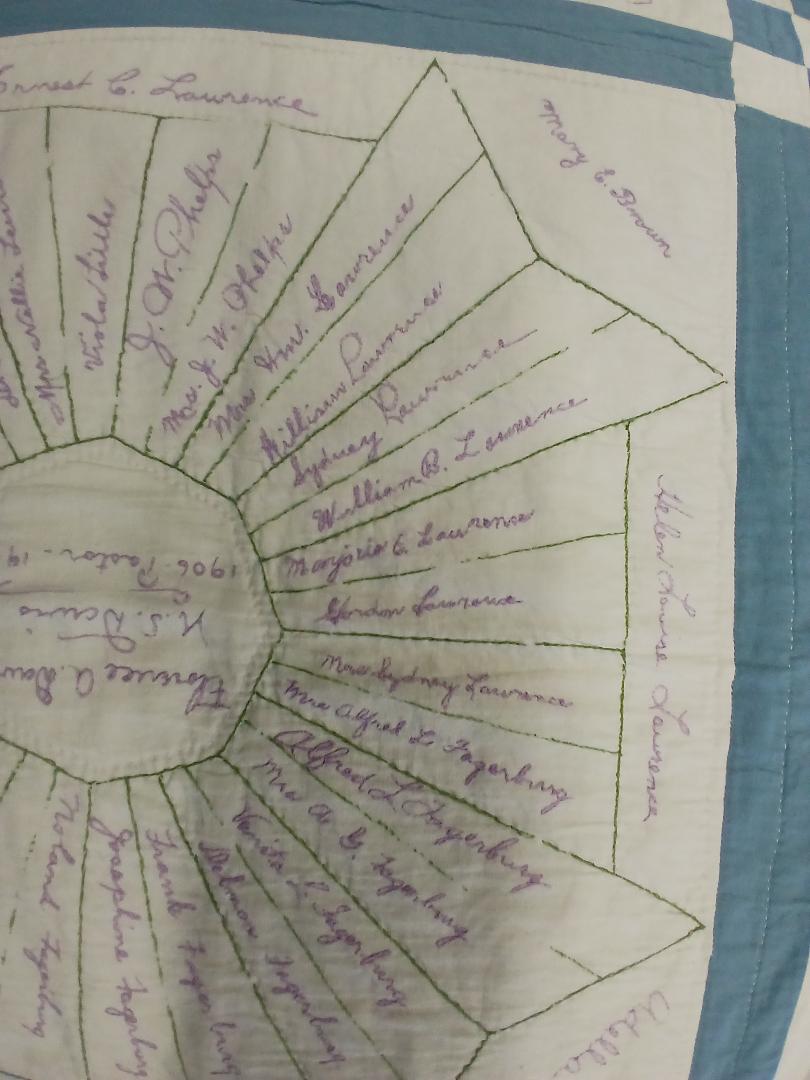 Ernest C. Lawrence
Mary E. Brown
Mrs Nellie
Viola Little
J. W. Phelps
Mrs. J. W. Phelps
Mrs Wm. Lawrence
William Lawrence
Sydney Lawrence
William B. Lawrence
Marjorie E. Lawrence
Gordon Lawrence
Helen Louise Lawrence
Mrs Sydney Lawrence
Mrs Alfred L. Fagerburg
Alfred L Fagerburg
Mrs A G. Fagerburg
Venita L. Fagerburg
Delmon Fagerburg
Frank Fagerburg
Josephine Fagerburg
Roland Fagerburg
Adella
Florence A.
N. S.
1906 Pastor. 19